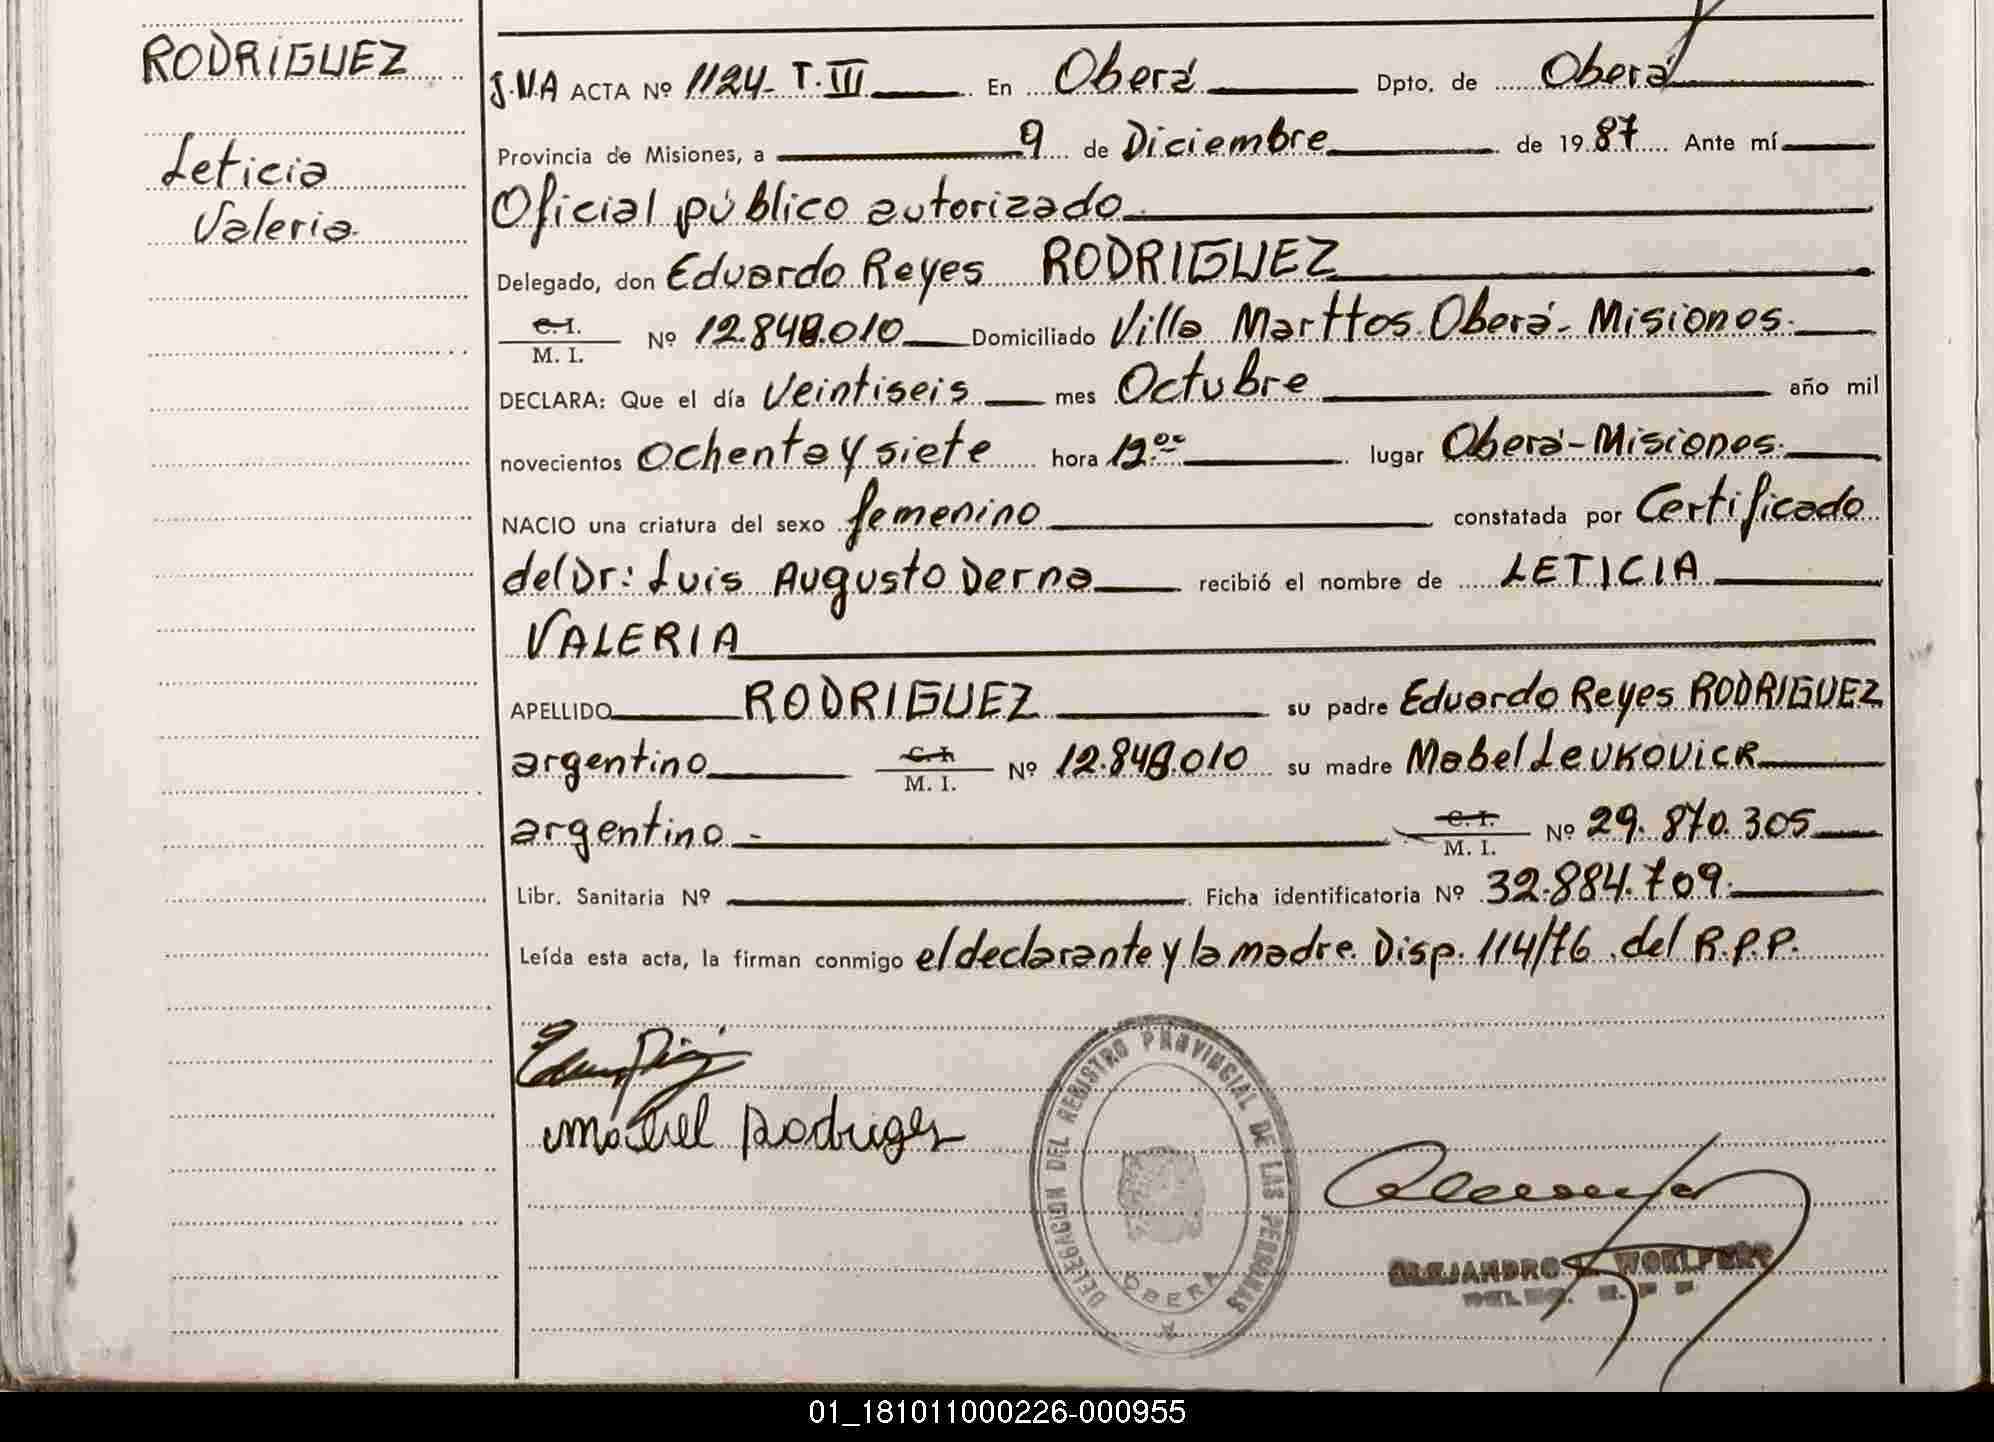 RODRIGUEZ
Leticia
Valeria.
J.V.A ACTA Nº 1124- T. III En Oberá Dpto. de Oberá
Provincia de Misiones, a 9 de Diciembre de 1987 Ante mí
Oficial público autorizado
Delegado, don Eduardo Reyes RODRIGUEZ
C. I.
M. I. Nº 12.848.010 Domiciliado Villa Marttos. Oberá- Misiones.
DECLARA: Que el día Veintiseis mes Octubre año mil
novecientos Ochenta y siete hora 12:00 lugar Oberá-Misiones.
NACIO una criatura del sexo femenino constatada por Certificado
del Dr: Luis Augusto Derna recibió el nombre de LETICIA
VALERIA
APELLIDO RODRIGUEZ su padre Eduardo Reyes RODRIGUEZ
argentino C. I. M. I. Nº 12.848.010 su madre Mabel Levkovicr
argentino - C. I. M. I. Nº 29.870.305
Libr. Sanitaria Nº Ficha identificatoria Nº 32.884.709.
Leída esta acta, la firman conmigo el declarante y la madre. Disp. 114/76 del R.P.P.
Mabel Rodriguez
DELEGACION DEL REGISTRO PROVINCIAL DE LAS PERSONAS
OBERA
ALEJANDRO WOHLFERT
DELEG. R. P. P.
01_181011000226-000955